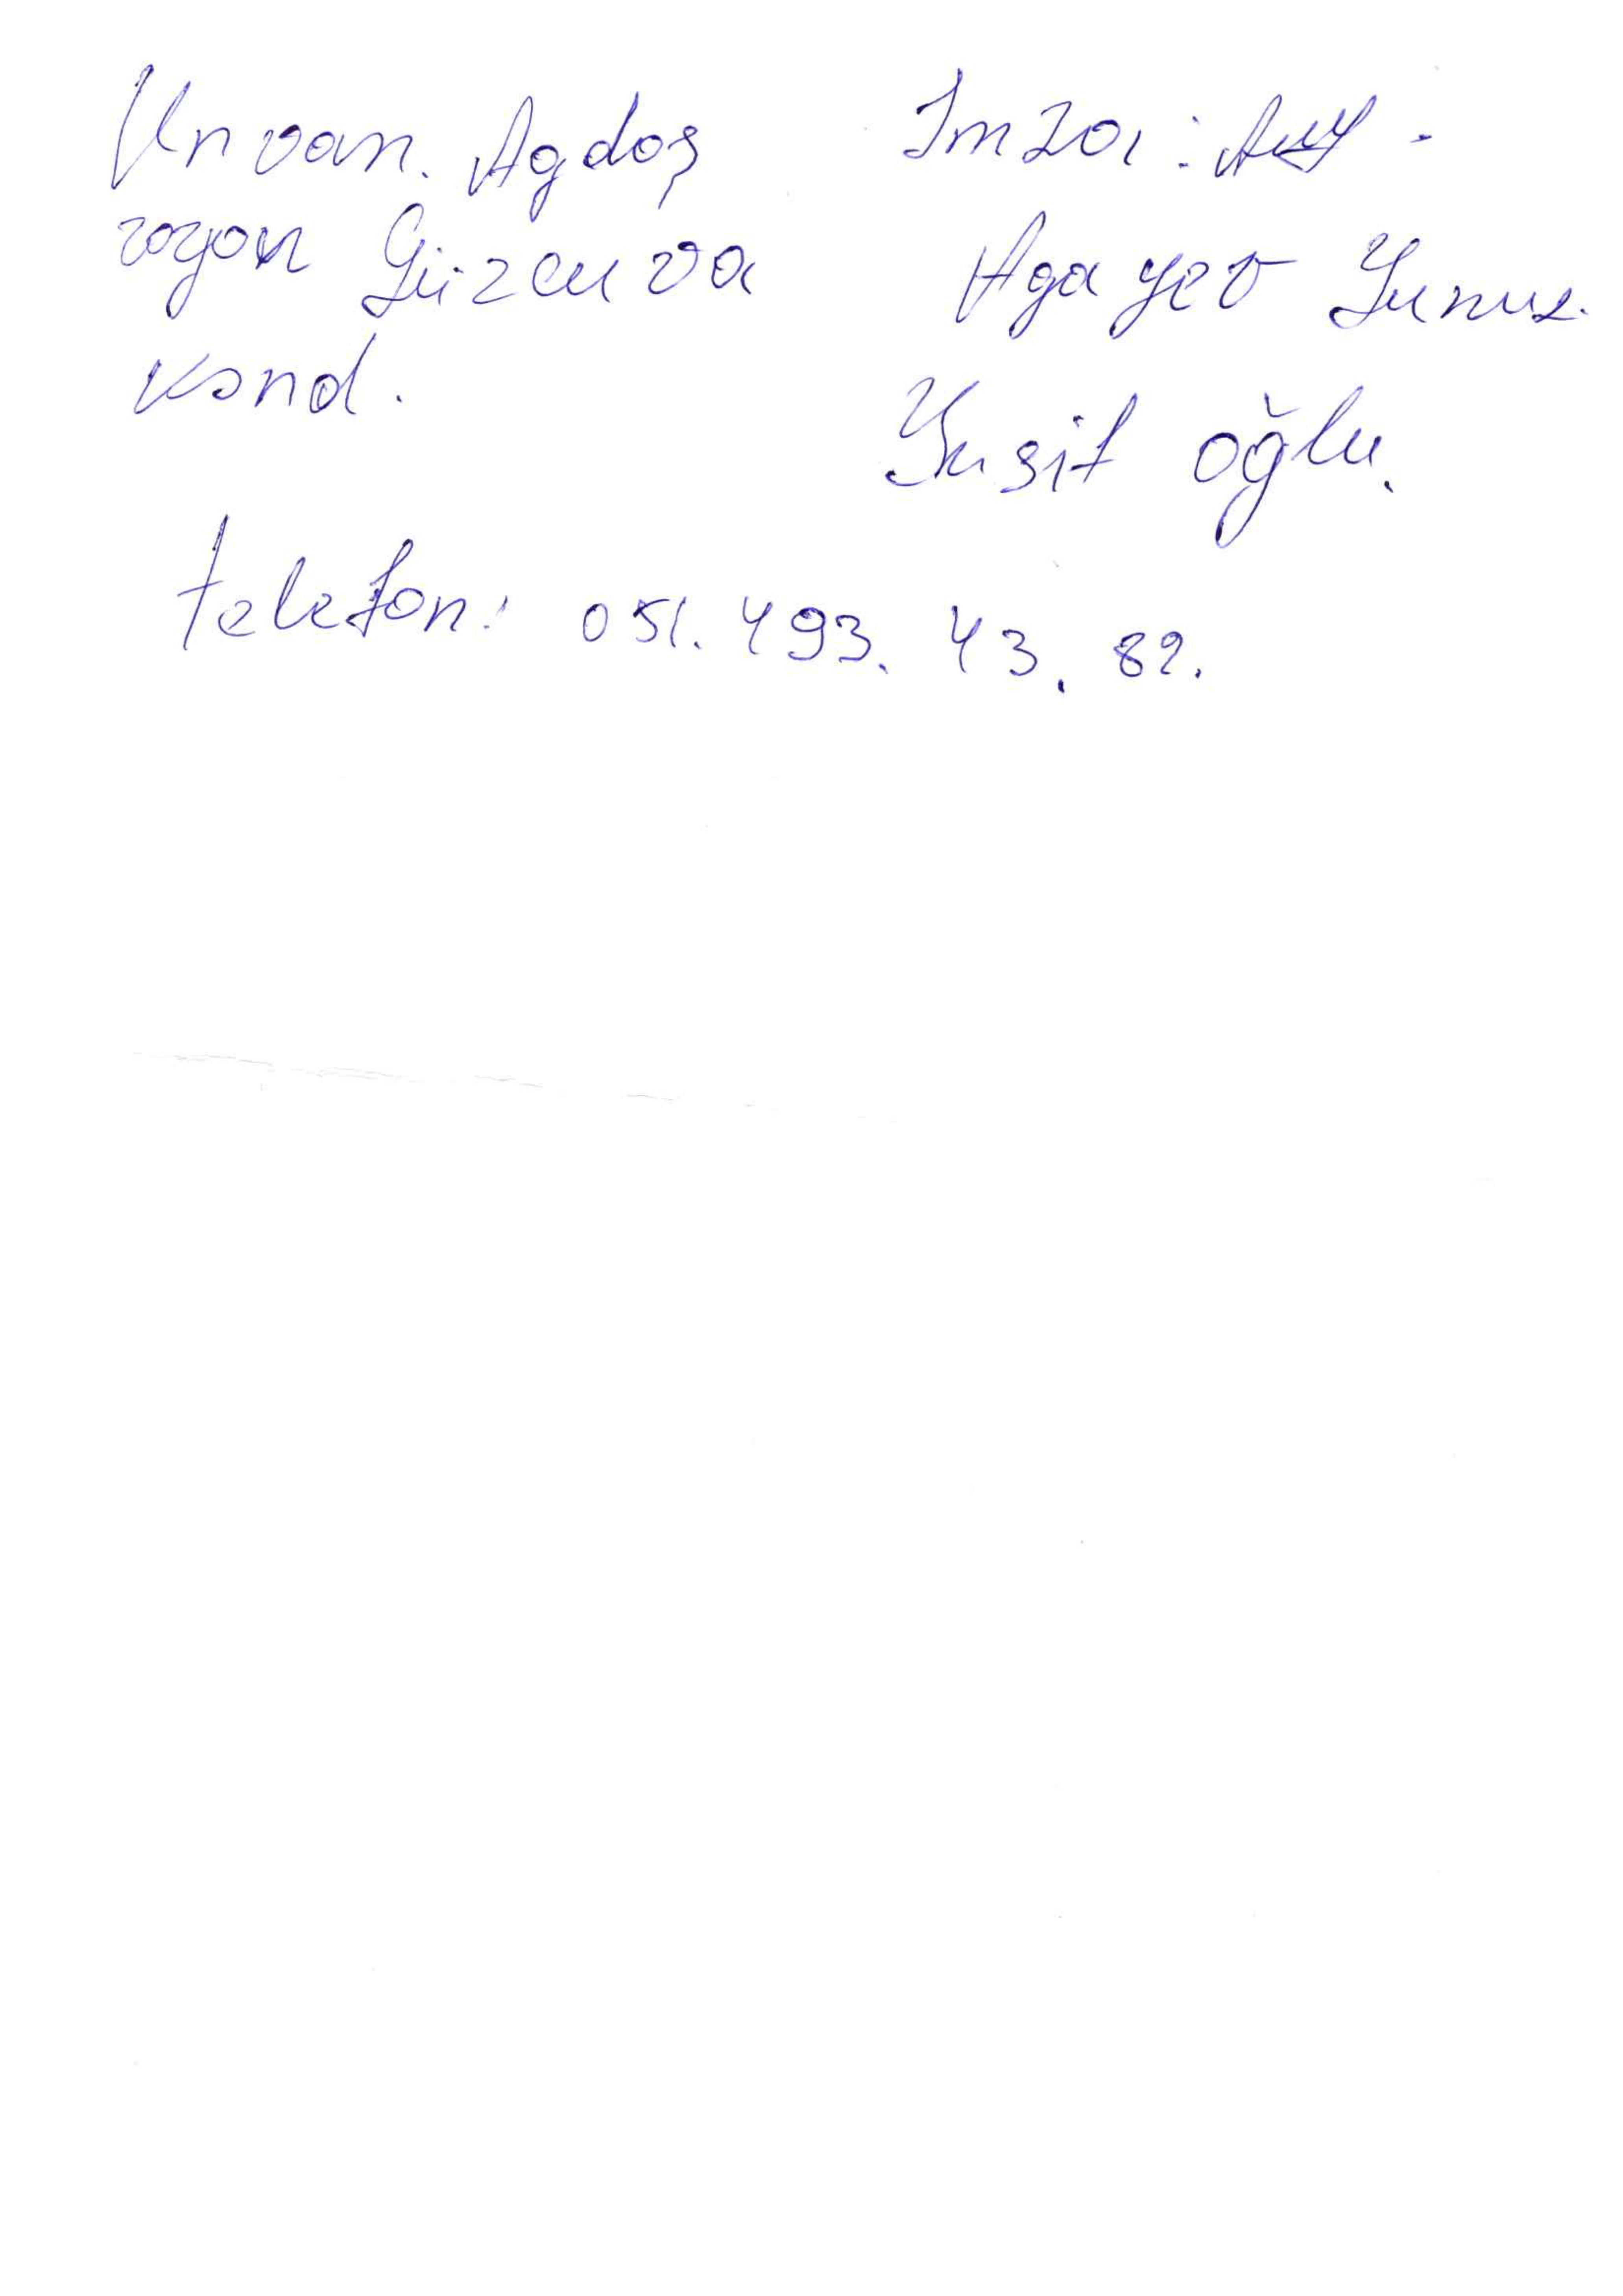 Unvan. Agdaş
rayon Güzauva
kənd.
Imza:
Agayev Yunus.
Yusif oğlu.
telefon: 051. 493. 43. 82.